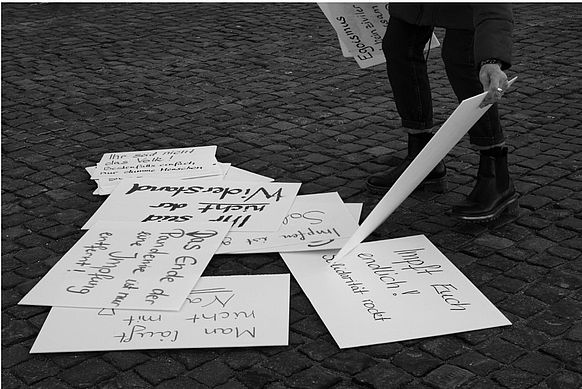 Egoismus
Ihr seid nicht
das Volk!
nur dumme Menschen
Ihr seid
nicht der
Widerstand
Sol
Impfen ist
Das Ende der
Pandemie ist nur
eine Impfung
entfernt!
Man läuft
nicht mit
Na
Impft Euch
endlich!
Solidarität rockt